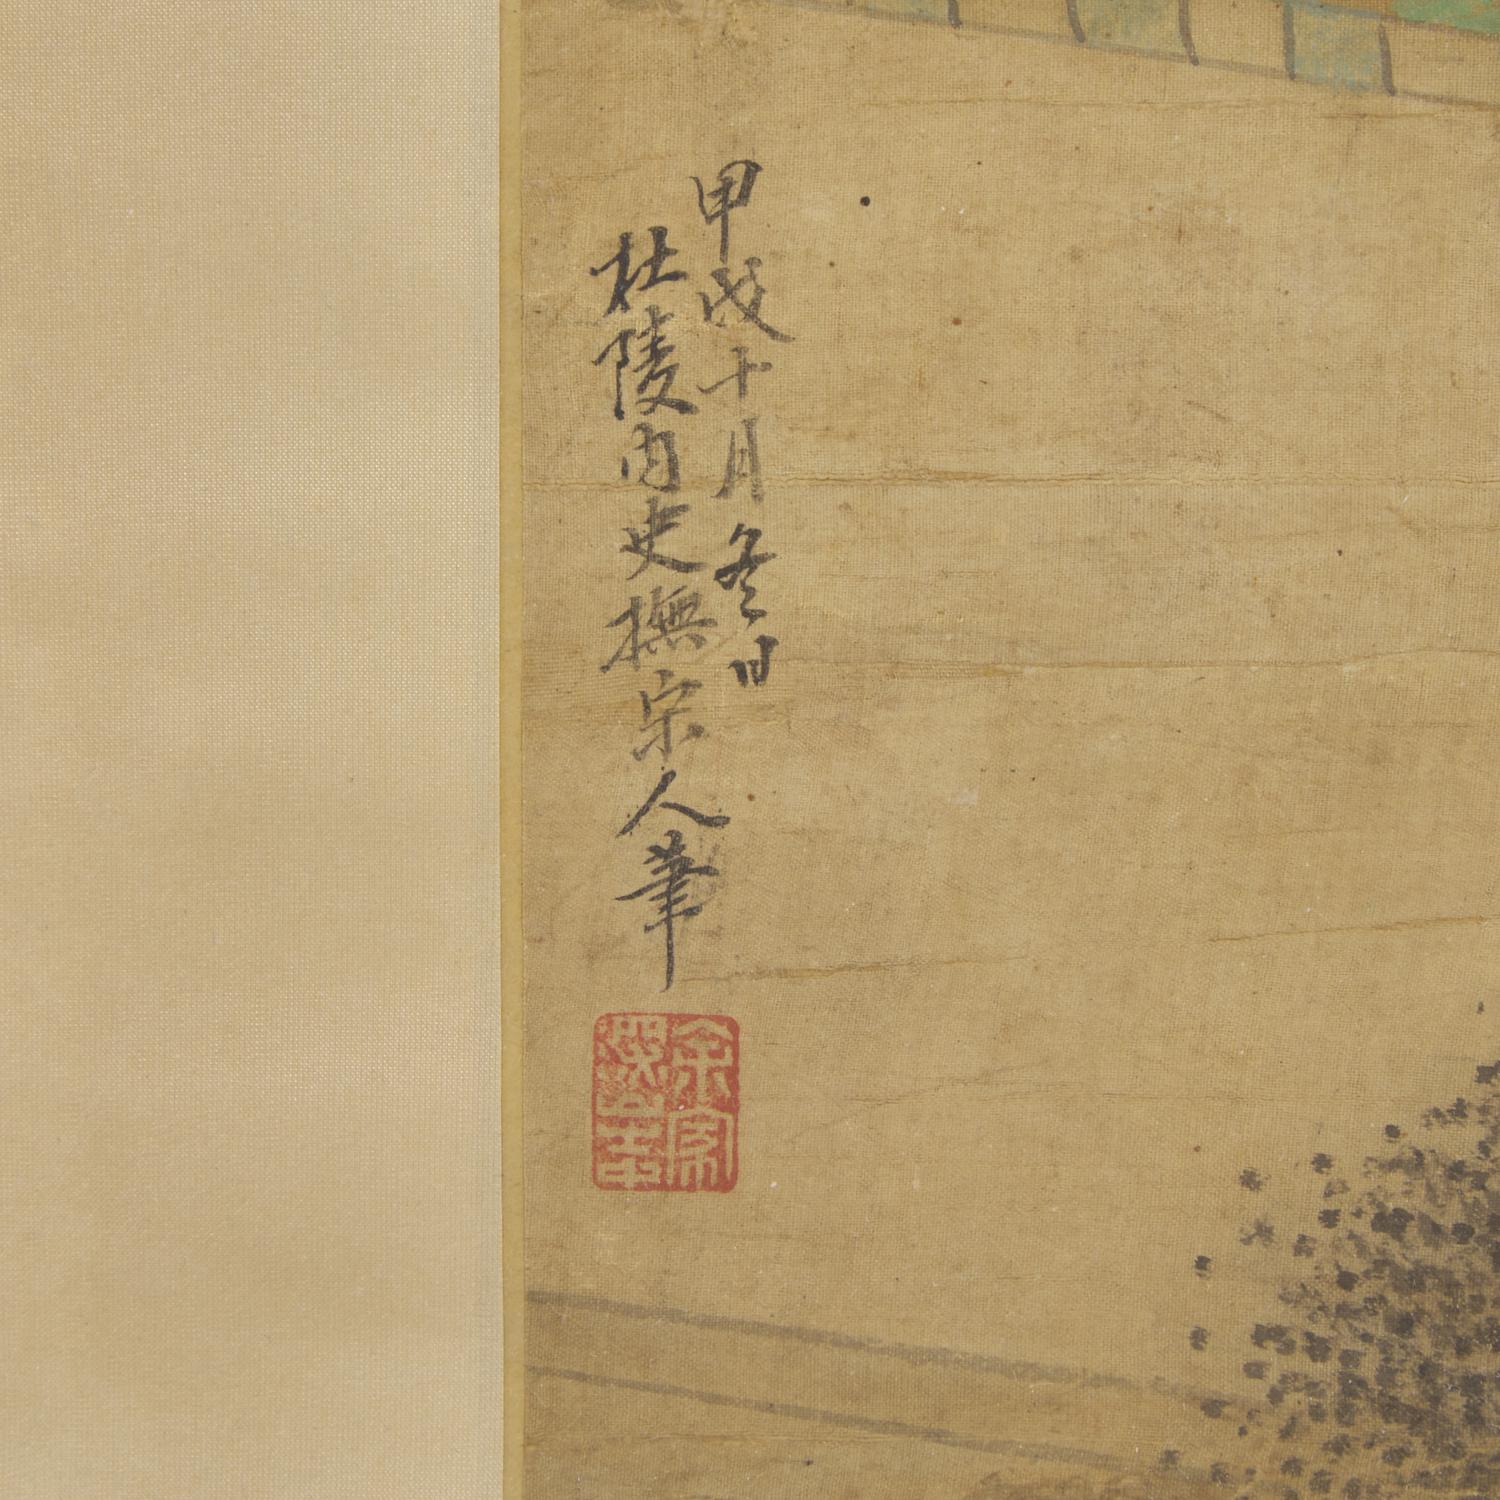 甲戌十月冬日
杜陵内史撫宗人筆